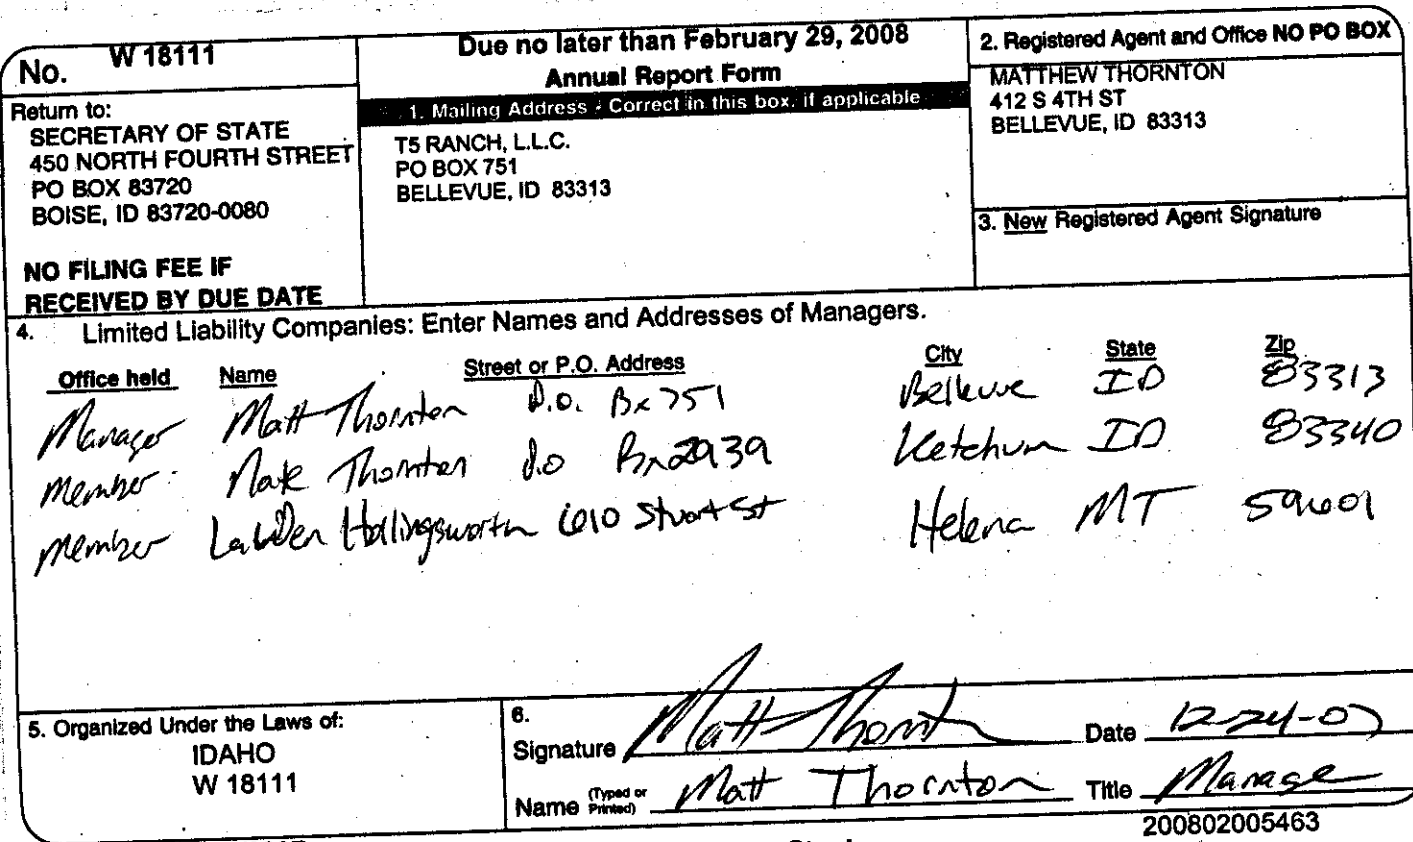 No. W 18111
Return to:
SECRETARY OF STATE
450 NORTH FOURTH STREET
PO BOX 83720
BOISE, ID 83720-0080
NO FILING FEE IF
RECEIVED BY DUE DATE
Due no later than February 29, 2008
Annual Report Form
1. Mailing Address - Correct in this box, if applicable
T5 RANCH, L.L.C.
PO BOX 751
BELLEVUE, ID 83313
2. Registered Agent and Office NO PO BOX
MATTHEW THORNTON
412 S 4TH ST
BELLEVUE, ID 83313
3. New Registered Agent Signature
4. Limited Liability Companies: Enter Names and Addresses of Managers.
Office held Name Street or P.O. Address City State Zip
Manager Matt Thornton P.O. Bx 751 Bellevue ID 83313
Member Thornton P.O Bx 2939 Ketchum ID 83340
Member Hollingsworth 610 Stuart St Helena MT 59601
5. Organized Under the Laws of:
IDAHO
W 18111
6.
Signature Matt Thornt Date 12-24-07
Name (Typed or Printed) Matt Thornton Title Manage
200802005463